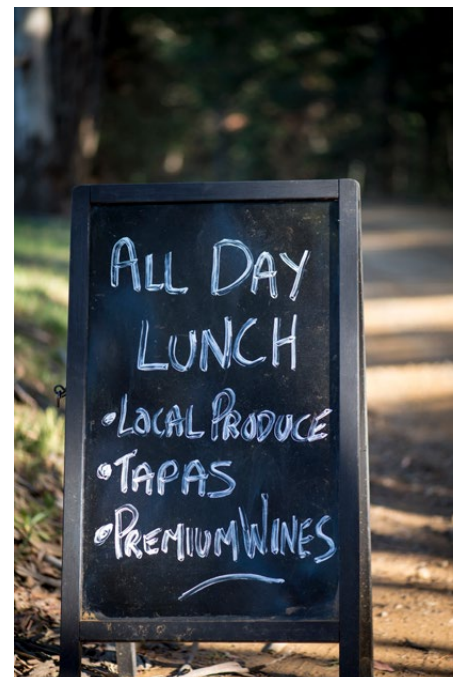 ALL DAY
LUNCH
•LOCAL PRODUCE
•TAPAS
•PREMIUM WINES